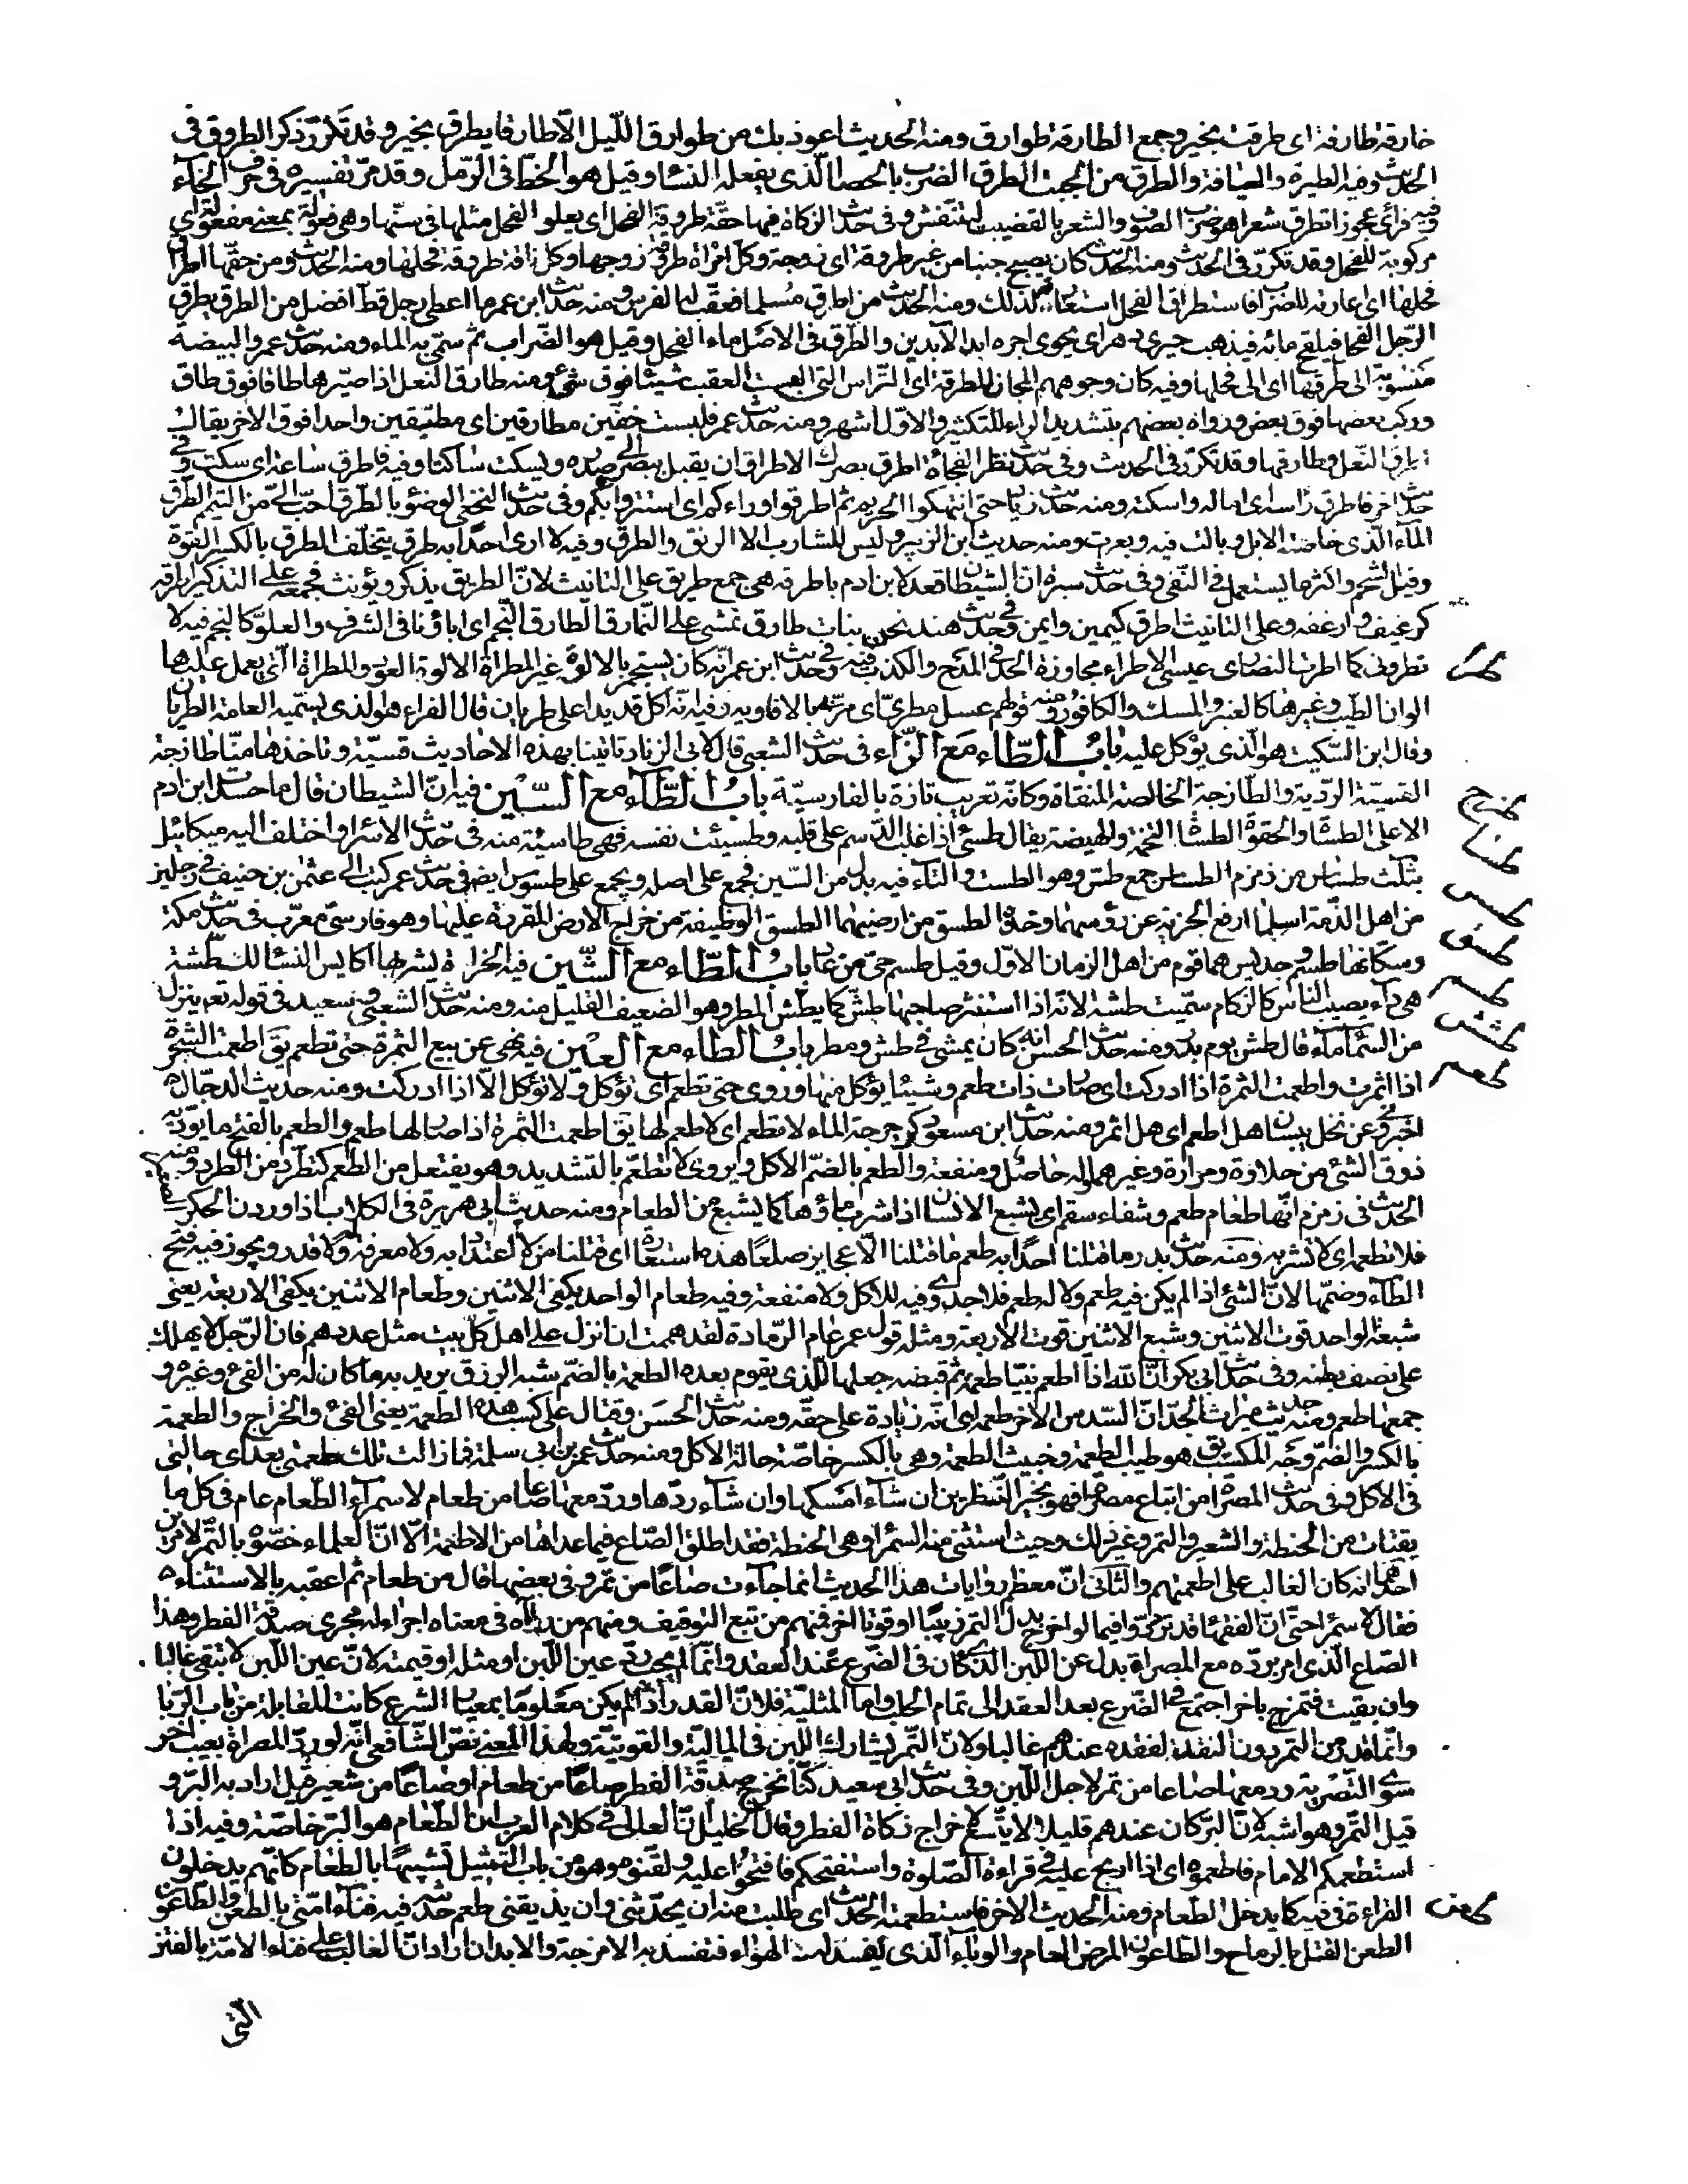 خارقة طارقة اى طرقت بخير وجمع الطارقة طوارق ومنه الحديث اعوذ بك من طوارق اللّيل الّا طارقا يطرق بخير وقد تكرّر ذكر الطروق فى
الحديث وفيه الطيرة والعيافة والطرق من الجبت الطرق الضرب بالحصا الّذى يفعله النسا وقيل هو الخطّ فى الرّمل وقد مرّ تفسيره فى حرف الخآء
وفيه فرأى عجوزا تطرق شعرا هو ضرب الصوف والشعر بالقضيب لينتفش وفى حديث الزكاة فيها حقّة طروقة الفحل اى يعلو الفحل مثلها فى سنّها وهى فعولة بمعنى مفعولة اى
مركوبة للفحل وقد تكرّر فى الحديث ومنه الحديث كان يصبح جنبا من غير طروقة اى زوجة وكلّ امرأة طروقة زوجها وكل ناقة طروقة فحلها ومنه الحديث ومن حقّها اطراق
فحلها اى اعارته للضراب فاستطراق الفحل استعارته لذلك ومنه الحديث من اطرق مسلما فعقّب له الفرس ومنه حديث ابن عمر ما اعطى رجل قطّ افضل من الطرق يطرق
الرّجل الفحل فيلقح مائه فيذهب حيرى دهر اى يحوى اجره ابد الآبدين والطّرق فى الاصل ماء الفحل وقيل هو الضّراب ثم سمّى به الماء ومنه حديث عمر والبيضة
منسوبة الى طرقها اى الى فحلها وفيه كان وجوههم المجان المطرقة اى التّراس التى البست العقب شيئا فوق شئ ومنه طارق النعل اذا صيّرها طاقا فوق طاق
وركب بعضها فوق بعض ورواه بعضهم بتشديد الراء للتكثير والاوّل اشهر ومنه حديث عمر فلبست خفّين مطارقين اى مطبقين واحدا فوق الاخر يقال
اطرق النّعل وطارقها وقد تكرّر فى الحديث وفى حديث نظر الفجأة اطرق بصرك الاطراق ان يقبل ببصره الى صدره ويسكت ساكتا وفيه فاطرق ساعة اى سكت وفى
حديث اخر فاطرق رأسه اى اماله واسكته ومنه حديث زياد حتى انتهكوا الحريم ثم اطرقوا وراءكم اى استتروا بكم وفى حديث النخعى الوضؤ بالطرق احبّ الىّ من التيمم الطّرق
المآء الّذى خاضته الابل وبالت فيه وبعرت ومنه حديث ابن الزبير وليس للشارب الا الرنق والطرق وفيه لا ارى احدا به طرق يتخلّف الطرق بالكسر القوة
وقيل الشحم واكثر ما يستعمل فى النّفى وفى حديث سبرة انّ الشيطان قعد لابن ادم باطرقه هى جمع طريق على التانيث لانّ الطريق يذكر ويؤنث فجمعه على التذكير اطرقه
كرغيف وارغفه وعلى التانيث اطرق كيمين وايمن وفى حديث هند نحن بنات طارق نمشى على النّمارق الطّارق النّجم اى اباؤنا فى الشرف والعلوّ كالنجم فيه لا
تطرونى كما اطرت النصارى عيسى الاطراء مجاوزة الحدّ فى المدح والكذب فيه وفى حديث ابن عمر انّه كان يستجمر بالالوّة غير المطراة الالوة العود والمطراة الّتى يعمل عليها
الوان الطّيب وغيرها كالعنبر والمسك والكافور ومنه قولهم عسل مطرىّ اى مربّى بالافاويه وفيه انّه اكل قديدا على طريان قال الفراء هو الذى يسمّيه العامة الطريان
وقال ابن السّكيت هو الّذى يؤكل عليه باب الطّاء مع الزّاء فى حديث الشعبى قال لابى الزناد تاتينا بهذه الاحاديث قسيّة وتاخذها منّا طازجة
القسيّة الرّدية والطّازجة الخالصة المنقاة وكانّه تعريب تازة بالفارسيّة باب الطّآء مع السّين فيه انّ الشيطان قال ما حسدت ابن ادم
الا على الطسأة والحقوة الطسأة التخمة والهيضة يقال طسئ اذا غلب الدّسم على قلبه وطسيئت نفسه فهى طاسيئة منه فى حديث الاسراء واختلف اليه ميكائيل
بثلث طساس من زمزم الطساس جمع طسّ وهو الطست والتآء فيه بدل من السّين فجمع على اصله ويجمع على طسوس ايضا فى حديث عمر كتب الى عثمن بن حنيف فى رجلين
من اهل الذّمة اسلما ارفع الجزية عن رؤسهما وخذ الطسق من ارضيهما الطسق الوظيفة من خراج الارض المقررة عليها وهو فارسىّ معرّب فى حديث مكة
وسكّانها طسم وجديس هما قوم من اهل الزمان الاوّل وقيل طسم حىّ من عاد باب الطّاء مع الشّين فيه الحزاءة يشربها اكايس النسا للطّشّة
هى دآء يصيب النّاس كالزكام سمّيت طشّة لانّه اذا استنثر صاحبها طشّ كما يطشّ المطر وهو الضعيف القليل منه ومنه حديث الشعبى وسعيد فى قوله تعه ينزل
من السمآء مآء قال طش يوم بدر ومنه حديث الحسن انه كان يمشى فى طش ومطر باب الطاء مع العين فيه نهى عن بيع الثمرة حتى تطعم يق اطعمت الشجرة
اذا اثمرت واطعمت الثمرة اذا ادركت اى صارت ذات طعم وشيئا يؤكل منها وروى حتى تطعم اى تؤكل ولا تؤكل الّا اذا ادركت ومنه حديث الدجّال
اخبرونى عن نخل بيسان هل اطعم اى هل اثمر ومنه حديث ابن مسعود كرجرجة الماء لا تطعم اى لا طعم لها يق اطعمت الثمرة اذا صار لها طعم والطعم بالفتح ما يؤدّيه
ذوق الشئ من حلاوة ومرارة وغيرهما وله حاصل ومنفعة والطّعم بالضّم الاكل ويروى لا تطّعم بالتشديد وهو يفتعل من الطّعم كتطّرد من الطرد ومنه
الحديث فى زمزم انّها طعام طعم وشفاء سقم اى يشبع الانسان اذا شرب ماؤها كما يشبع من الطعام ومنه حديث ابى هريرة فى الكلاب اذا وردن الحكر
فلا تطعمه اى لا تشربه ومنه حديث بدر ما قتلنا احدا به طعم ما قتلنا الّا عجايز صلعا هذه استعارة اى قتلنا من لا اعتداد به ولا معرفة ولا قدر ويجوز فيه فتح
الطّآء وضمّها لانّ الشئ اذا لم يكن فيه طعم ولا له طعم فلا جدوى فيه للاكل ولا منفعة وفيه طعام الواحد يكفى الاثنين وطعام الاثنين يكفى الاربعة يعنى
شبعة الواحد قوت الاثنين وشبع الاثنين قوت الاربعة ومثله قول عمر عام الرّمادة لقد هممت ان انزل على اهل كلّ بيت مثل عددهم فان الرّجل لا يهلك
على نصف بطنه وفى حديث ابى بكر انّ اللّه اذا اطعم نبيّا طعمة ثم قبضه جعلها للّذى يقوم بعده الطعمة بالضّم شبه الرزق يريد به ما كان له من الفئ وغيره و
جمعها طعم ومنه حديث ميراث الجدّ انّ السّدس الاخر طعمة اى انّه زيادة على حقّه ومنه حديث الحسن وقتال على كسب هذه الطعمة يعنى الفئ والخراج والطعمة
بالكسر والضّم وجه المكسب يق هو طيب الطعمة وخبيث الطعمة وهى بالكسر خاصّة حالة الاكل ومنه حديث عمر بن ابى سلمة فما زالت تلك طعمتى بعد اى حالتى
فى الاكل وفى حديث المصرّاة من ابتاع مصرّاة فهو بخير النّظرين ان شآء امسكها وان شآء ردّها وردّ معها صاعا من طعام لا سمرآء الطّعام عام فى كل ما
يقتات من الحنطة والشعير والتمر وغير ذلك وحيث استثنى منه السمراء وهى الحنطة فقد اطلق الصّاع فيما عداها من الاطعمة الّا انّ العلماء خصّوه بالتّمر لامرين
احدهما انه كان الغالب على اطعمتهم والثّانى انّ معظم روايات هذا الحديث انما جآءت صاعا من تمر وفى بعضها قال من طعام ثم اعقبه بالاستثناء
فقال لا سمراء حتّى انّ الفقهاء قد تردّدوا فيما لو اخرج بدل التمر زبيبا او قوتا اخر فمنهم من تبع التوقيف ومنهم من رآه فى معناه اجراء له مجرى صدقة الفطر وهذا
الصّاع الّذى امر بردّه مع المصراة بدل عن اللّبن الّذى كان فى الضّرع عند العقد وانّما لم يجب ردّ عين اللّبن او مثله او قيمته لانّ عين اللّبن لا تبقى غالبا
وان بقيت فتمتزج باخر اجتمع فى الضرع بعد العقد الى تمام الحلب واما المثليّة فلانّ القدر اذا لم يكن معلوما بمعيار الشرع كانت المقابلة من باب الرّبا
وانّما قدر من التمر دون النقد لفقده عندهم غالبا ولانّ التّمر يشارك اللبن فى الماليّة والقوتيّة ولهذا المعنى نصّ الشّافعى انّه لو ردّ المصراة بعيب اخر
سوى التّصرية ردّ معها صاعا من تمر لاجل اللّبن وفى حديث ابى سعيد كنّا نخرج صدقة الفطر صاعا من طعام او صاعا من شعير قيل اراد به البرّ و
قيل التّمر وهو اشبه لانّ البرّ كان عندهم قليلا لا يتّسع لاخراج زكاة الفطر وقال الخليل انّ العالى فى كلام العرب ان الطّعام هو البرّ خاصّة وفيه اذا
استطعمكم الامام فاطعموه اى اذا ارتج عليه فى قراءة الصّلوة واستفتحكم فافتحوا عليه ولقّنوه وهو من باب التمثيل تشبيها بالطعام كانّهم يدخلون
القراءة فى فيه كما يدخل الطعام ومنه الحديث الاخر فاستطعمته الحديث اى طلبت منه ان يحدّثنى وان يذيقنى طعم حديثه فيه فنآء امّتى بالطعن والطّاعون
الطعن القتل بالرماح والطّاعون المرض العام والوبآء الّذى يفسد له الهوآء فتفسد به الامزجة والابدان اراد انّ الغالب على فناء الامّة بالفتن
الّتى
طزج
طسا
طسس
طسق
طسم
طشش
طعم
طعن